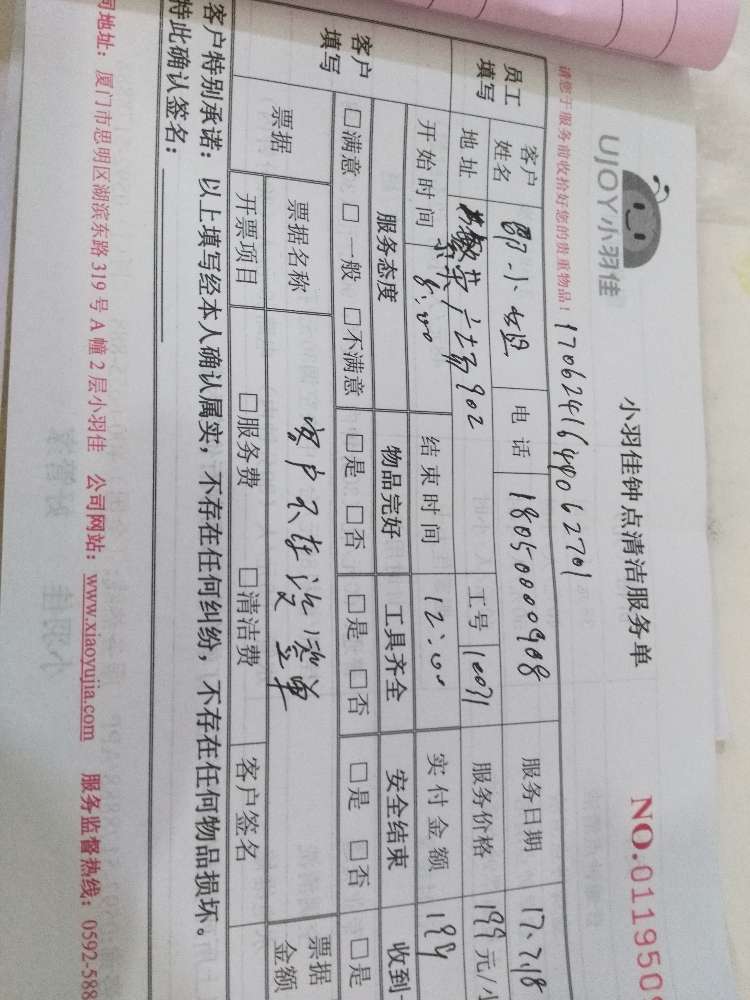 UJOY小羽佳
小羽佳钟点清洁服务单
NO.011950
请您于服务前收拾好您的贵重物品！
员工填写 客户姓名 小姐 电话 18050000908 服务日期 17.7.18
地址 繁荣广场902 工号 10071 服务价格 199元/小
开始时间 8:00 结束时间 12:00 实付金额 199
客户填写 服务态度 物品完好 工具齐全 安全结束 收到
□满意 □一般 □不满意 □是 □否 □是 □否 □是 □否 □是
票据 票据名称 客户不在没签单 票据金额
开票项目 □服务费 □清洁费 客户签名
客户特别承诺：以上填写经本人确认属实，不存在任何纠纷，不存在任何物品损坏。
特此确认签名：
司地址：厦门市思明区湖滨东路319号A幢2层小羽佳 公司网站：www.xiaoyujia.com 服务监督热线：0592-588